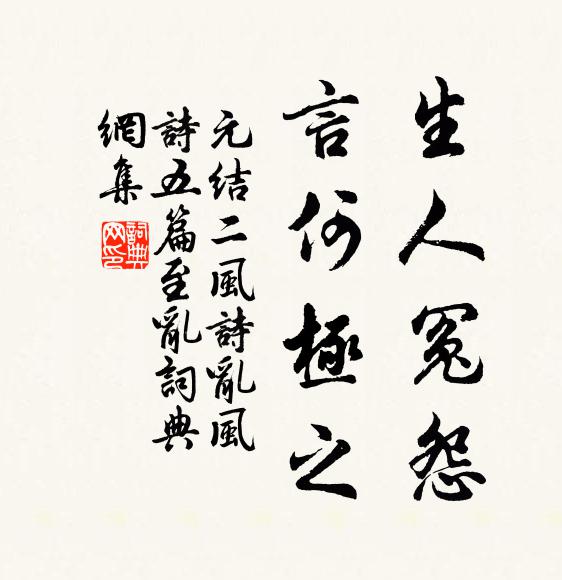 生人冤怨
言何極之
元結二風詩亂風
詩五篇至亂詞典
網集
詞典网印